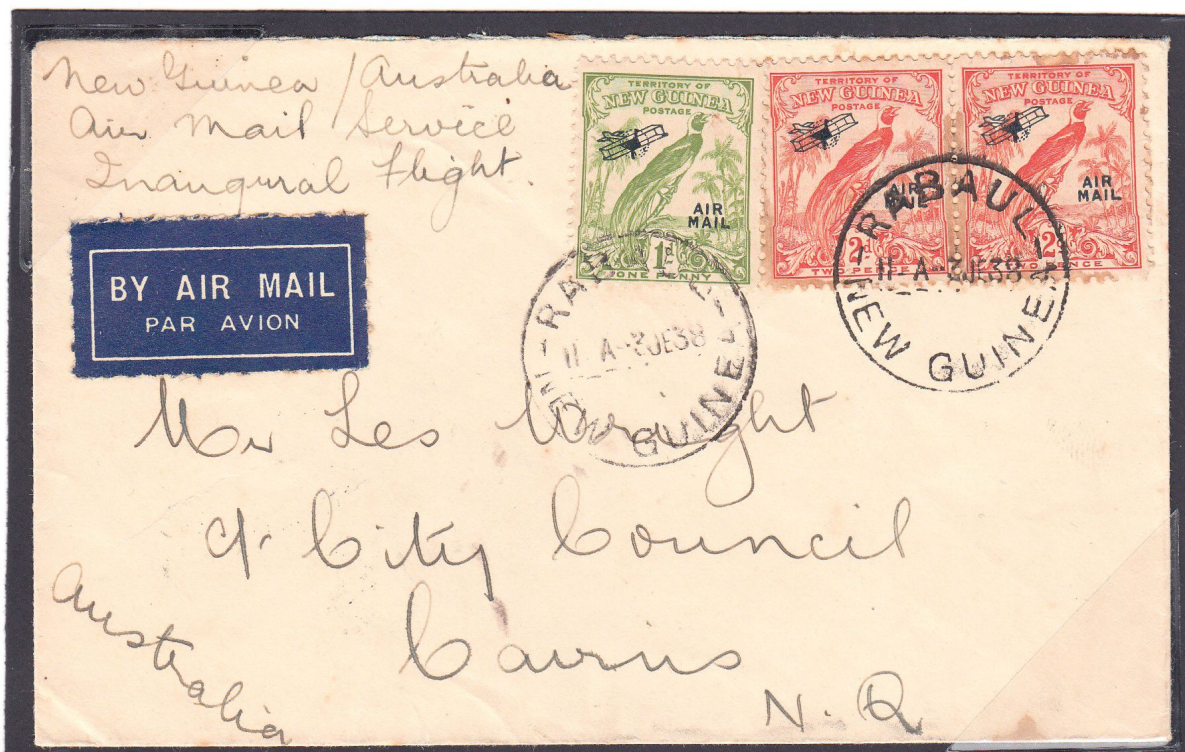 New Guinea / Australia
Air Mail Service
Inaugural Flight.
TERRITORY OF
NEW GUINEA
POSTAGE
AIR
MAIL
1D
ONE PENNY
TERRITORY OF
NEW GUINEA
POSTAGE
AIR
MAIL
2D
TWO PENCE
TERRITORY OF
NEW GUINEA
POSTAGE
AIR
MAIL
2D
TWO PENCE
RABAUL
11 A JE 38
NEW GUINEA
RABAUL
11 A JE 38
NEW GUINEA
BY AIR MAIL
PAR AVION
Mr Les Wright
c/- City Council
Cairns
N. Q
Australia